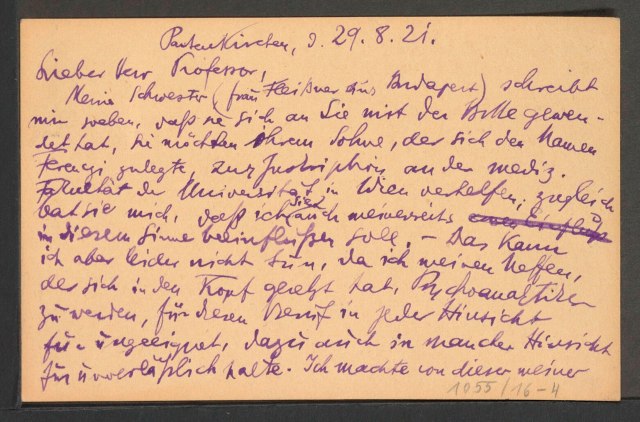 Partenkirchen, d. 29. 8. 21.
Lieber Herr Professor,
Meine Schwester (Frau Fleißner aus Budapest) schreibt
mir soeben, daß sie sich an Sie mit der Bitte gewen-
det hat, Sie möchten ihrem Sohne, der sich den Namen
Ferenczi zulegte, zur Inskription an der mediz.
Fakultät der Universität in Wien verhelfen; zugleich
bat sie mich, daß ich Sie auch meinerseits
in diesem Sinne beeinflußen soll. – Das kann
ich aber leider nicht tun, da ich meinen Neffen,
der sich in den Kopf gesetzt hat, Psychoanalytiker
zu werden, für diesen Beruf in jeder Hinsicht
für ungeeignet, dazu auch in mancher Hinsicht
für unverläßlich halte. Ich machte von dieser meiner
1055/16-4